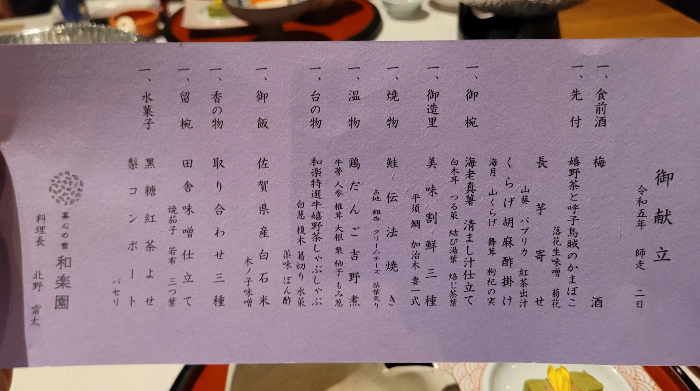 御献立
令和五年 師走 二日
一、食前酒 梅酒
一、先付 嬉野茶と呼子烏賊のかまぼこ
落花生味噌 菊花
長芋寄せ
山葵 パプリカ 紅茶出汁
くらげ胡麻酢掛け
海月 山くらげ 舞茸 枸杞の実
一、御椀 海老真薯 清まし汁仕立て
白木耳 つる菜 結び湯葉 焙じ茶葉
一、御造里 美味割鮮 三種
平須 鯛 加治木 妻一式
一、焼物 鮭 伝法焼き
占地 銀杏 クリームチーズ 茶葉炙り
一、温物 鶏だんご吉野煮
牛蒡 人参 椎茸 大根 栗 柚子 もみ葱
一、台の物 和楽特選牛嬉野茶しゃぶしゃぶ
白葱 榎木 葛切り 水菜
薬味 ぽん酢
一、御飯 佐賀県産白石米
木ノ子味噌
一、香の物 取り合わせ三種
一、留椀 田舎味噌仕立て
焼茄子 若布 三つ葉
一、水菓子 黒糖紅茶よせ
梨コンポート
パセリ
和楽園
料理長 北野 雷太